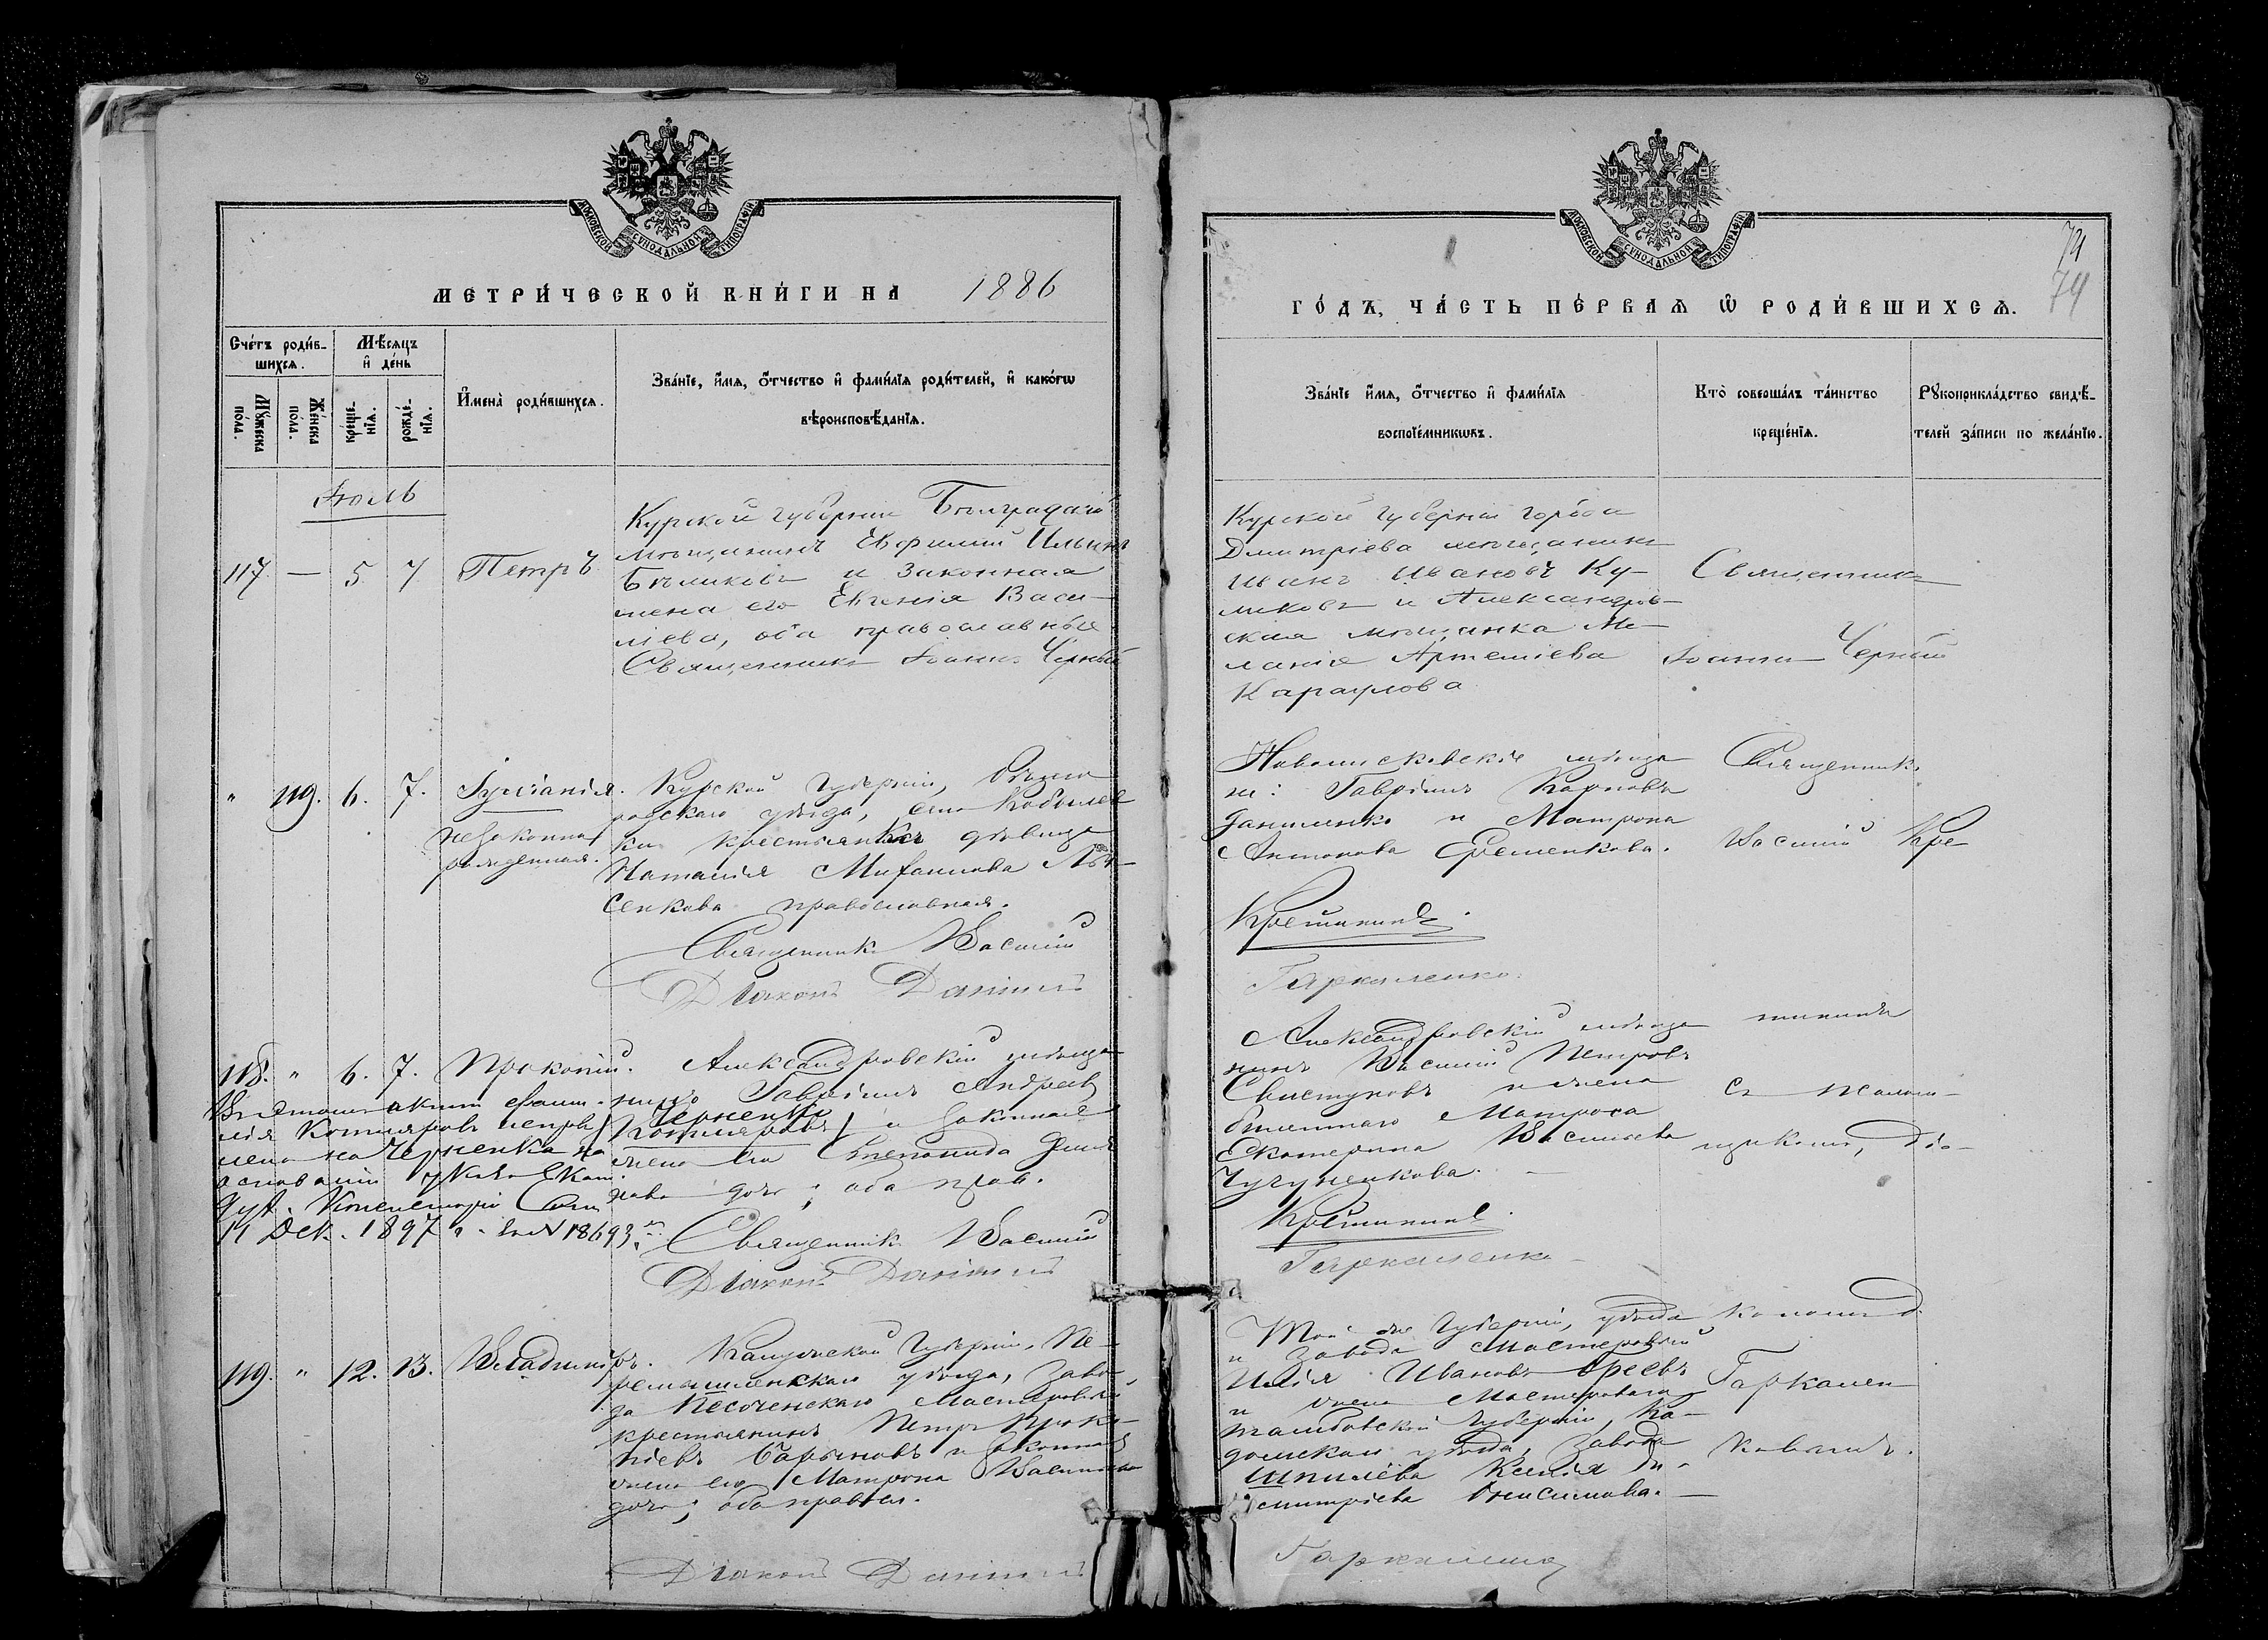 МОСКОВСКОЙ СУНОДАЛЬНОЙ ТИПОГРАФІИ
МЕТРИ́ЧЕСКОЙ КНИ́ГИ НА 1886
Сче́тъ роди́в-
шихсѧ.
Мѣ́сѧцъ
и҆ де́нь
Мꙋ́жеска
по́ла.
Же́нска
по́ла.
креще́-
нїѧ.
рожде́-
нїѧ.
И҆мена̀ роди́вшихсѧ.
Зва́нїе, и҆́мѧ, ѻ҆́тчество и҆ фами́лїѧ роди́телей, и҆ како́гѡ
вѣроисповѣ́данїѧ.
Іюль
117. — 5 7 Петръ
Курской губерніи Бѣлградскій
мѣщанинъ Евфимій Ильинъ
Бѣликовъ и законная
жена его Евгенія Васи-
ліева, оба православные
Священникъ Іоаннъ Черный
" 119. 6. 7. Іуліанія.
незаконно
рожденная.
Курской Губерніи,
уѣзда, села
крестьянка дѣвица
Наталія
православная.
Священникъ Василій
Діаконъ Даніилъ
118. " 6. 7. Прокопій.
Въ этомъ актѣ фами-
лія Котляровъ исправ-
лена на Черненко на
основаніи указа Екат.
Дух. Консисторіи
11 Дек. 1897 г. за № 18693
Александровскій мѣща-
нинъ Гавріилъ Андреевъ
Черненко
(Котляровъ) и законная
жена его
оба прав.
Священникъ Василій
Діаконъ Даніилъ
119. " 12. 13. Владиміръ.
Калужской Губерніи, Пе-
ремышленскаго уѣзда, Заво-
да Песоченскаго Мастеровой
крестьянинъ Петръ Проко-
піевъ Барыновъ и законная
жена его Матрона Васильева
оба правосл.
Діаконъ Даніилъ
МОСКОВСКОЙ СУНОДАЛЬНОЙ ТИПОГРАФІИ
74
ГО́ДЪ, ЧА́СТЬ ПЕ́РВАѦ Ѡ҆ РОДИ́ВШИХСѦ.
Зва́нїе и҆́мѧ, ѻ҆́тчество и҆ фами́лїѧ
воспрїе́мникѡвъ.
Кто̀ соверша́лъ та́инство
креще́нїѧ.
Рꙋкоприкла́дство свидѣ́-
телей за́писи по жела́нїю.
Курской губерніи города
Дмитріева мѣщанинъ
Иванъ Ивановъ Ку-
ликовъ и Александров-
ская мѣщанка Ме-
ланія Артеміева
Караулова
Священникъ
Іоаннъ Черный
Новомосковскіе мѣща-
не: Гавріилъ Карповъ
Даниленко и Матрона
Антонова Еременкова.
Священникъ
Василій Кре-
Крешанинъ
Гаркаленко.
Александровскій мѣща-
нинъ Василій Петровъ
Свистуновъ и жена
Матроса
Екатерина Васильева
Чугуненкова. —
шанинъ
съ псалом-
щикомъ, Діа-
Крешанинъ
Гаркаленко
Той же Губерніи, уѣзда
и завода Мастеровой
Илія Ивановъ
и жена Мастероваго
Тамбовской Губерніи, Ка-
домскаго уѣзда, завода
Ксенія Ди-
митріева Онисимова. —
кономъ
Гаркален-
ковымъ.
Гаркаленко